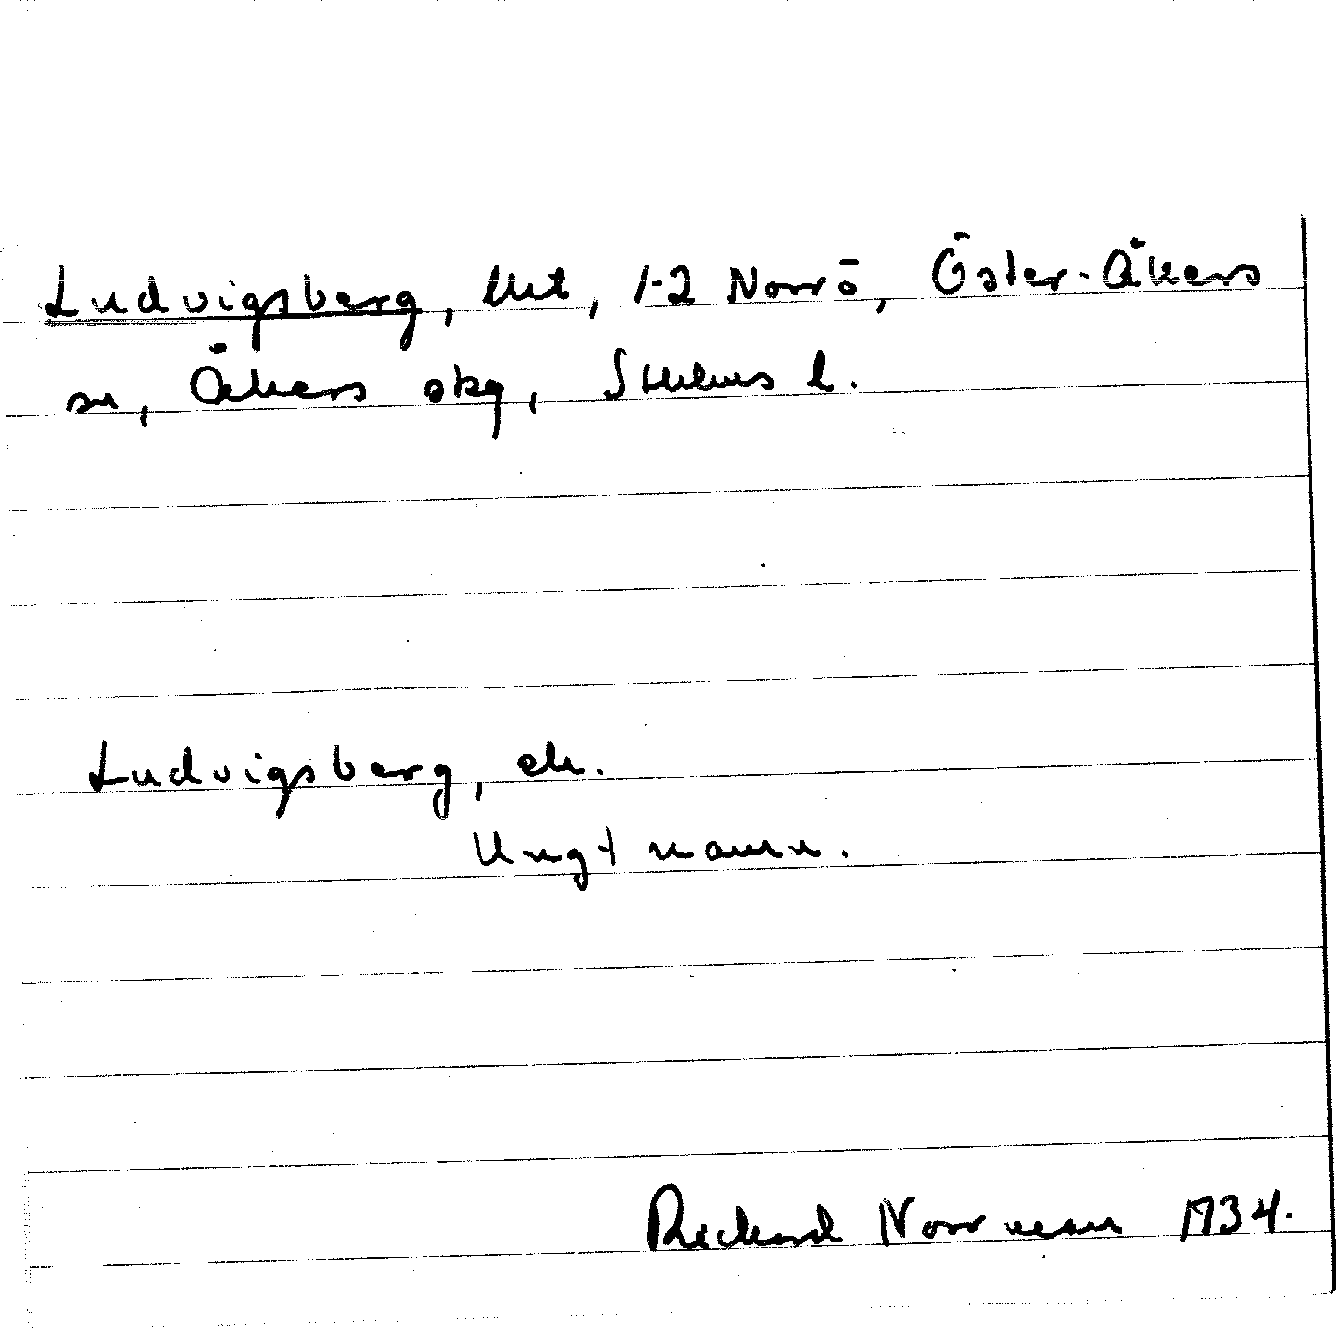 Ludvigsberg, lht, 1-2 Norrö, Öster-Åkers
sn, Åkers skg, Sthlms l.
Ludvigsberg, ch.
Ungt namn.
Rickard Norrman 1934.